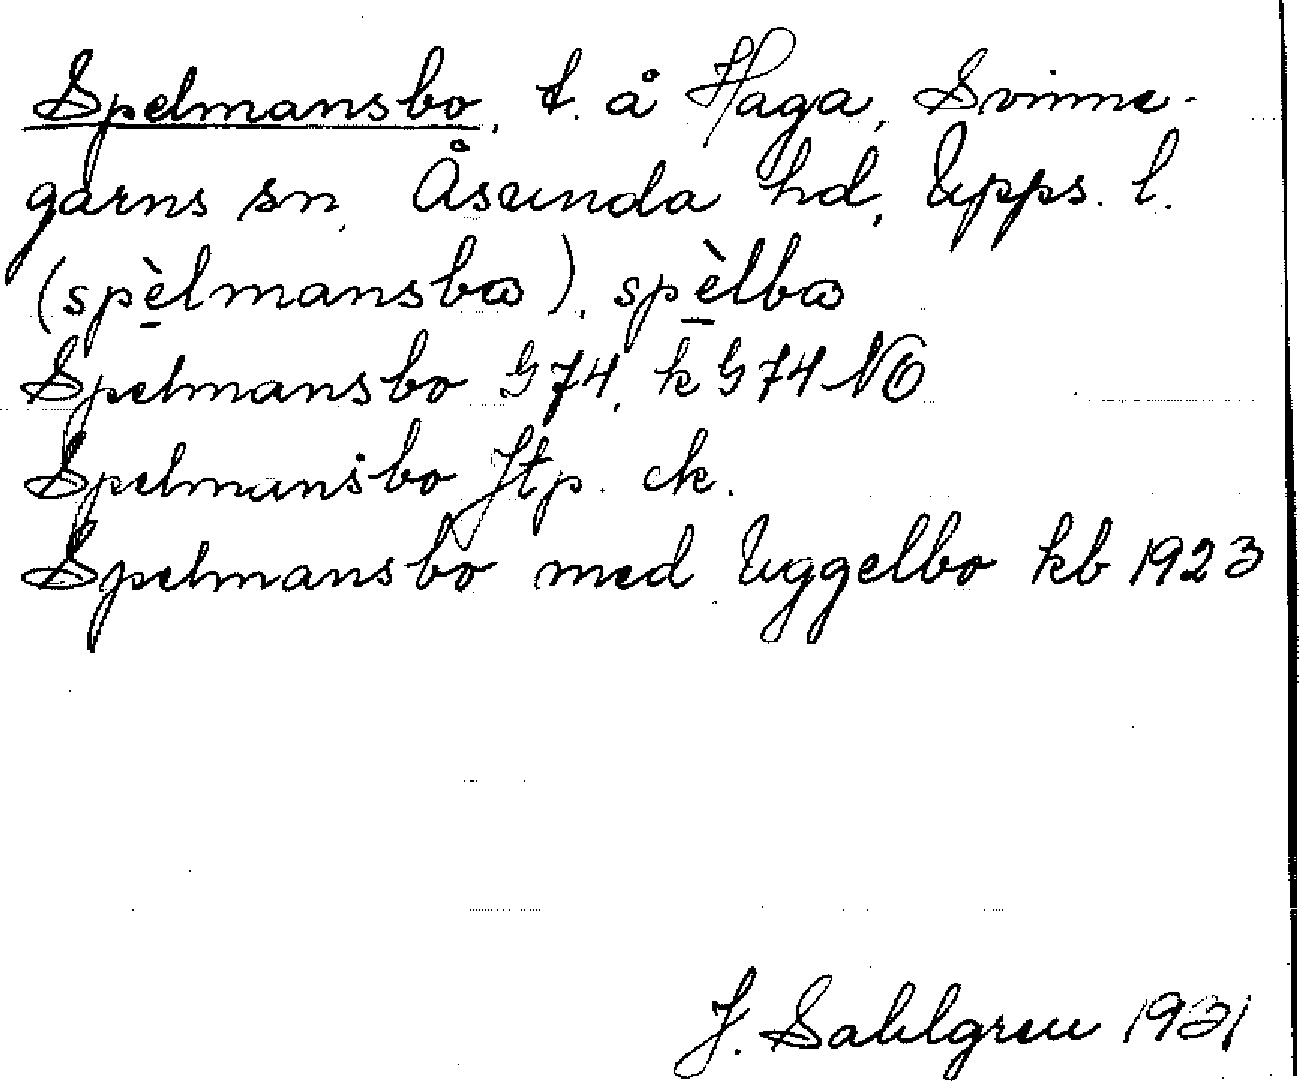 Spelmansbo, t. å Haga, Svinne-
garns sn, Åsunda hd, Upps. l.
(spèlmansbω), spèlbω
Spelmansbo G74, k G74 NO
Spelmansbo Jtp. ck.
Spelmansbo med Uggelbo kb 1923
J. Sahlgren 1931